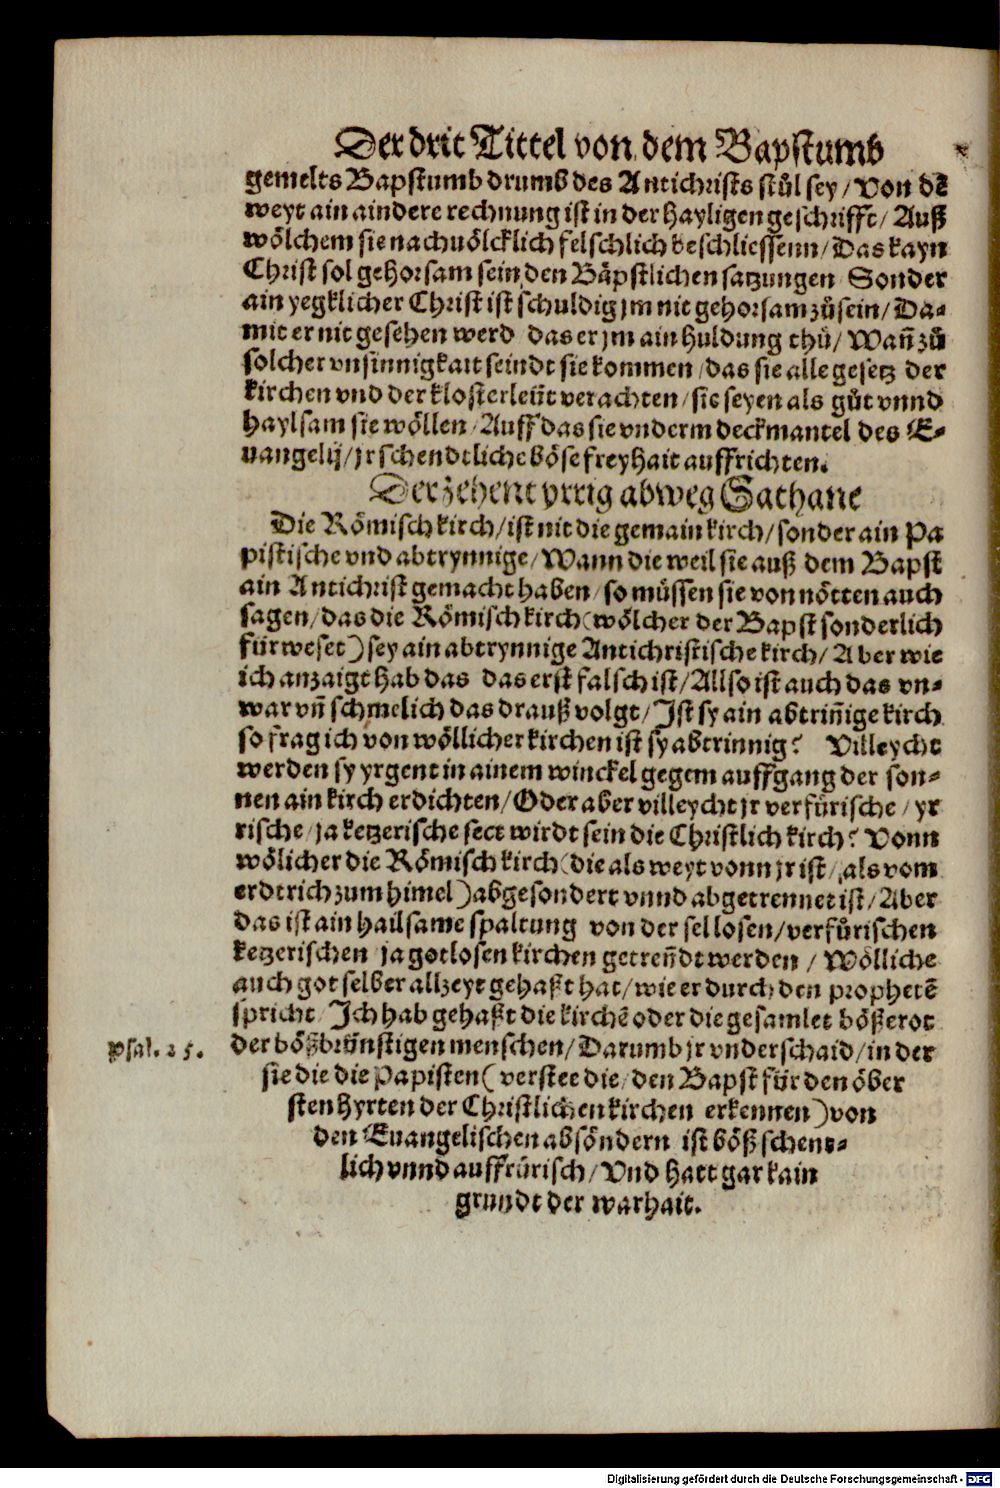 Der drit Tittel von dem Bapstumb
gemelts Bapstumb drumb des Antichrists stůl sey / von dē
weyt ain aindere rechnung ist in der hayligen geschrifft / Auß
wölchem sie nachuölcklich felschlich beschliessenn / Das kayn
Christ sol gehorsam sein den Bäpstlichen satzungen Sonder
ain yegklicher Christ ist schuldig jm nit gehorsam zů sein / Da⸗
mit er nit gesehen werd das er jm ain huldung thů / Wañ zů
solcher vnsinnigkait seindt sie kommen / das sie alle gesetz der
kirchen vnd der klosterleüt verachten / sie seyen als gůt vnnd
haylsam sie wöllen / Auff das sie vnderm deckmantel des E⸗
uangelij / jr schendtliche böse freyhait auffrichten.
Der zehent yrrig abweg Sathane
Die Römisch kirch / ist nit die gemain kirch / sonder ain Pa
pistische vnd abtrynnige / Wann die weil sie auß dem Bapst
ain Antichrist gemacht haben / so müssen sie von nötten auch
sagen / das die Römisch kirch (wölcher der Bapst sonderlich
fürweset) sey ain abtrynnige Antichristische kirch / Aber wie
ich anzaigt hab das das erst falsch ist / Allso ist auch das vn⸗
war vñ schmelich das drauß volgt / Ist sy ain abtriñige kirch
so frag ich von wöllicher kirchen ist sy abtrinnig? Villeycht
werden sy yrgent in ainem winckel gegem auffgang der son⸗
nen ain kirch erdichten / Oder aber villeycht jr verfürische / yr
rische / ja ketzerische sect wirdt sein die Christlich kirch? Vonn
wölicher die Römisch kirch (die als weyt vonn jr ist / als vom
erdtrich zum himel) abgesondert vnnd abgetrennet ist / Aber
das ist ain hailsame spaltung von der sellosen / verfůrischen
ketzerischen ja gotlosen kirchen getreñdt werden / Wölliche
auch got selber allzeyt gehaßt hat / wie er durch den prophetē
spricht / Ich hab gehaßt die kirchē oder die gesamlet bößerot
psal. 25. der bößbrünstigen menschen / Darumb jr vnderschaid / in der
sie die die Papisten (verstee die / den Bapst für den öber
sten hyrten der Christlichen kirchen erkennen) von
den Euangelischen absöndern ist böß schent⸗
lich vnnd auffrürisch / Vnd hatt gar kain
grundt der warhait.
Digitalisierung gefördert durch die Deutsche Forschungsgemeinschaft - DFG